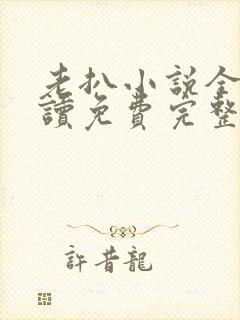 老扒小説全
讀免費完整
許昔龍